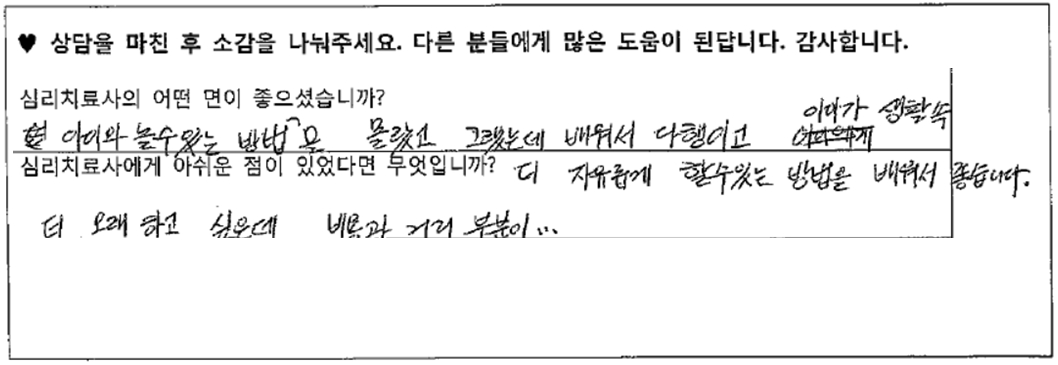 ♥ 상담을 마친 후 소감을 나눠주세요. 다른 분들에게 많은 도움이 된답니다. 감사합니다.
심리치료사의 어떤 면이 좋으셨습니까?
아이와 놀수있는 방법을 몰랐고 그랬는데 배워서 다행이고 생활속
심리치료사에게 아쉬운 점이 있었다면 무엇입니까? 더 자유롭게 할수있는 방법을 배워서 좋습니다.
더 오래 하고 싶은데 비용과 거리 부분이...